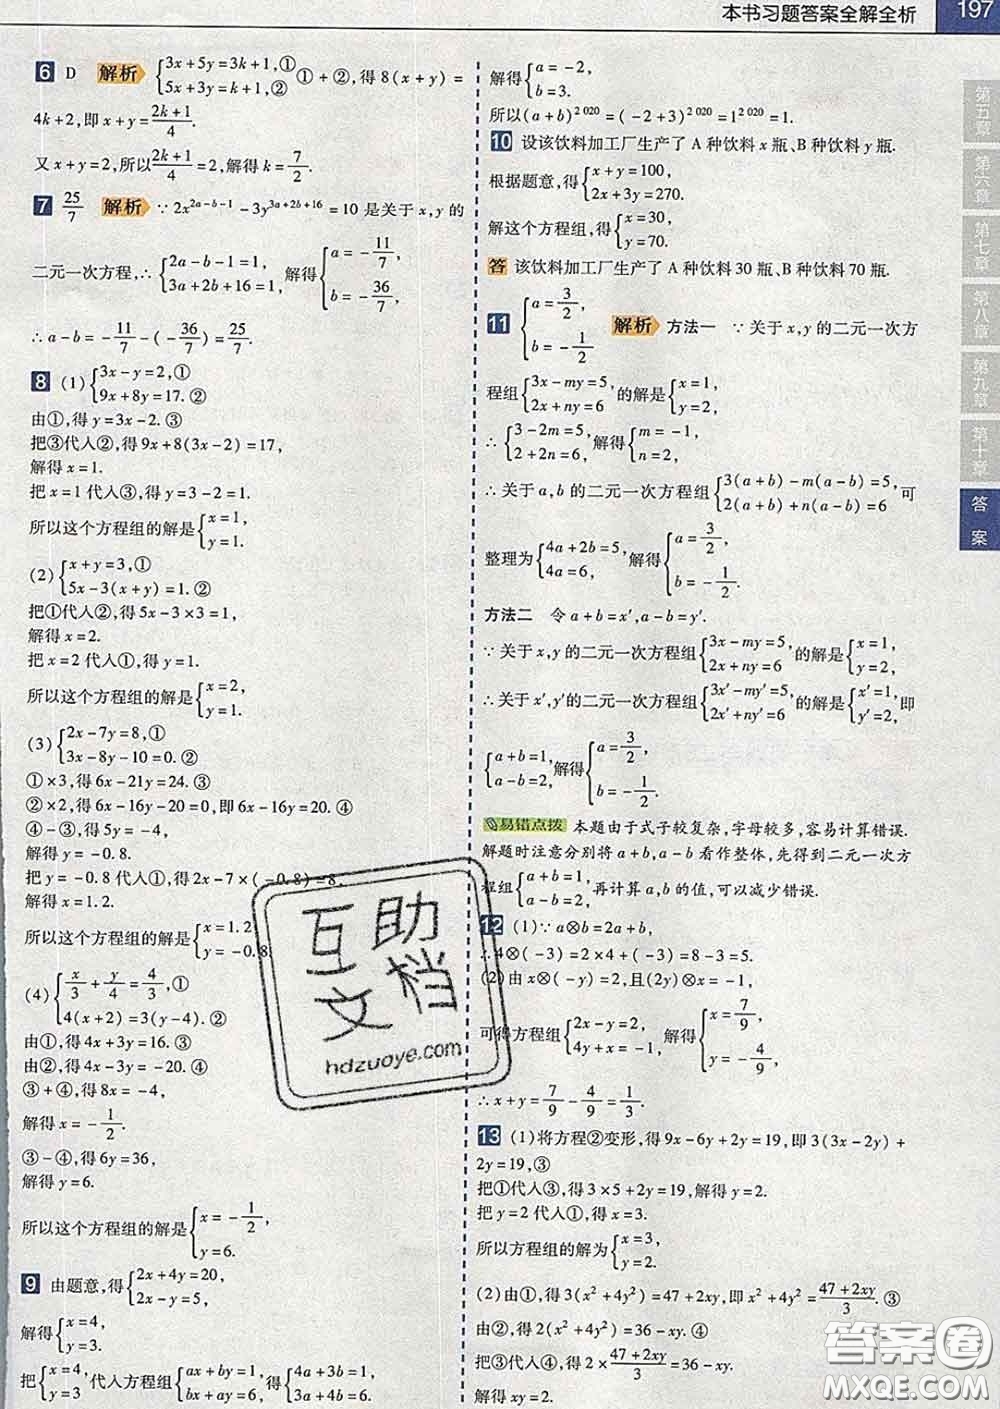 本书习题答案全解全析 197
6 D 解析 {3x+5y=3k+1,① 5x+3y=k+1,② ①+②,得8(x+y)=
4k+2,即x+y=(2k+1)/4.
又x+y=2,所以(2k+1)/4=2,解得k=7/2.
7 25/7 解析 ∵2x^{2a-b-1}-3y^{3a+2b+16}=10是关于x,y的
二元一次方程,∴{2a-b-1=1, 3a+2b+16=1, 解得{a=-11/7, b=-36/7,
∴a-b=-11/7-(-36/7)=25/7.
8 (1){3x-y=2,① 9x+8y=17.②
由①,得y=3x-2.③
把③代入②,得9x+8(3x-2)=17,
解得x=1.
把x=1代入③,得y=3-2=1.
所以这个方程组的解是{x=1, y=1.
(2){x+y=3,① 5x-3(x+y)=1.②
把①代入②,得5x-3×3=1,
解得x=2.
把x=2代入①,得y=1.
所以这个方程组的解是{x=2, y=1.
(3){2x-7y=8,① 3x-8y-10=0.②
①×3,得6x-21y=24.③
②×2,得6x-16y-20=0,即6x-16y=20.④
④-③,得5y=-4,
解得y=-0.8.
把y=-0.8代入①,得2x-7×(-0.8)=8,
解得x=1.2.
所以这个方程组的解是{x=1.2, y=-0.8.
(4){x/3+y/4=4/3,① 4(x+2)=3(y-4).②
由①,得4x+3y=16.③
由②,得4x-3y=-20.④
③+④,得8x=-4,
解得x=-1/2.
③-④,得6y=36,
解得y=6.
所以这个方程组的解是{x=-1/2, y=6.
9 由题意,得{2x+4y=20, 2x-y=5,
解得{x=4, y=3.
把{x=4, y=3代入方程组{ax+by=1, bx+ay=6, 得{4a+3b=1, 3a+4b=6,
解得{a=-2, b=3.
所以(a+b)^{2 020}=(-2+3)^{2 020}=1^{2 020}=1.
10 设该饮料加工厂生产了A种饮料x瓶、B种饮料y瓶.
根据题意,得{x+y=100, 2x+3y=270.
解这个方程组,得{x=30, y=70.
答 该饮料加工厂生产了A种饮料30瓶、B种饮料70瓶.
11 {a=3/2, b=-1/2 解析 方法一 ∵关于x,y的二元一次方
程组{3x-my=5, 2x+ny=6 的解是{x=1, y=2,
∴{3-2m=5, 2+2n=6, 解得{m=-1, n=2,
∴关于a,b的二元一次方程组{3(a+b)-m(a-b)=5, 2(a+b)+n(a-b)=6 可
整理为{4a+2b=5, 4a=6, 解得{a=3/2, b=-1/2.
方法二 令a+b=x′,a-b=y′.
∵关于x,y的二元一次方程组{3x-my=5, 2x+ny=6 的解是{x=1, y=2,
∴关于x′,y′的二元一次方程组{3x′-my′=5, 2x′+ny′=6 的解是{x′=1, y′=2, 即
{a+b=1, a-b=2, 解得{a=3/2, b=-1/2.
易错点拨 本题由于式子较复杂,字母较多,容易计算错误.
解题时注意分别将a+b,a-b看作整体,先得到二元一次方
程组{a+b=1, a-b=2, 再计算a,b的值,可以减少错误.
12 (1)∵a⊗b=2a+b,
∴4⊗(-3)=2×4+(-3)=8-3=5.
(2)由x⊗(-y)=2,且(2y)⊗x=-1,
可得方程组{2x-y=2, 4y+x=-1, 解得{x=7/9, y=-4/9,
∴x+y=7/9-4/9=1/3.
13 (1)将方程②变形,得9x-6y+2y=19,即3(3x-2y)+
2y=19,③
把①代入③,得3×5+2y=19,解得y=2.
把y=2代入①,得x=3.
所以方程组的解为{x=3, y=2.
(2)由①,得3(x²+4y²)=47+2xy,即x²+4y²=(47+2xy)/3.③
由②,得2(x²+4y²)=36-xy.④
把③代入④,得2×(47+2xy)/3=36-xy,
解得xy=2.
第五章
第六章
第七章
第八章
第九章
第十章
答案
互助
文档
hdzuoye.com
答案圈
MXQE.COM